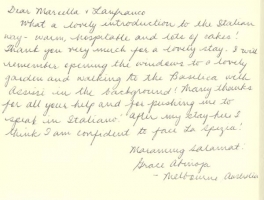 Dear Marcella + Lanfranco
What a lovely introduction to the Italian
way - warm, hospitable and lots of cakes!
Thank you very much for a lovely stay. I will
remember opening the windows to a lovely
garden and walking to the Basilica with
Assisi in the background! Many thanks
for all your help and for pushing me to
speak in Italiano! After my stay here I
think I am confident to face La Spezia!
Maraming Salamat!
Grace
- Melbourne Australia